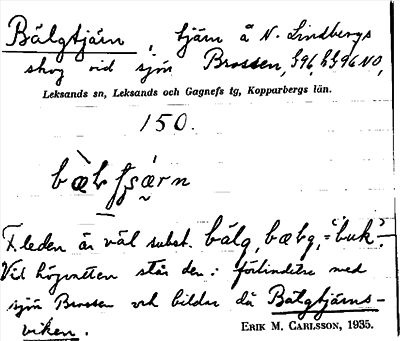 Bälgtjärn, tjärn å N. Lindbergs
skog vid sjön Brossen, § 96, h § 96 NO,
Leksands sn, Leksands och Gagnefs tg, Kopparbergs län.
150.
F. leden är väl subst. bälg, bælg, = "buk".
Vid högvatten står den i förbindelse med
sjön Brossen och bildar då Bälgtjärns-
viken.
ERIK M. CARLSSON, 1935.